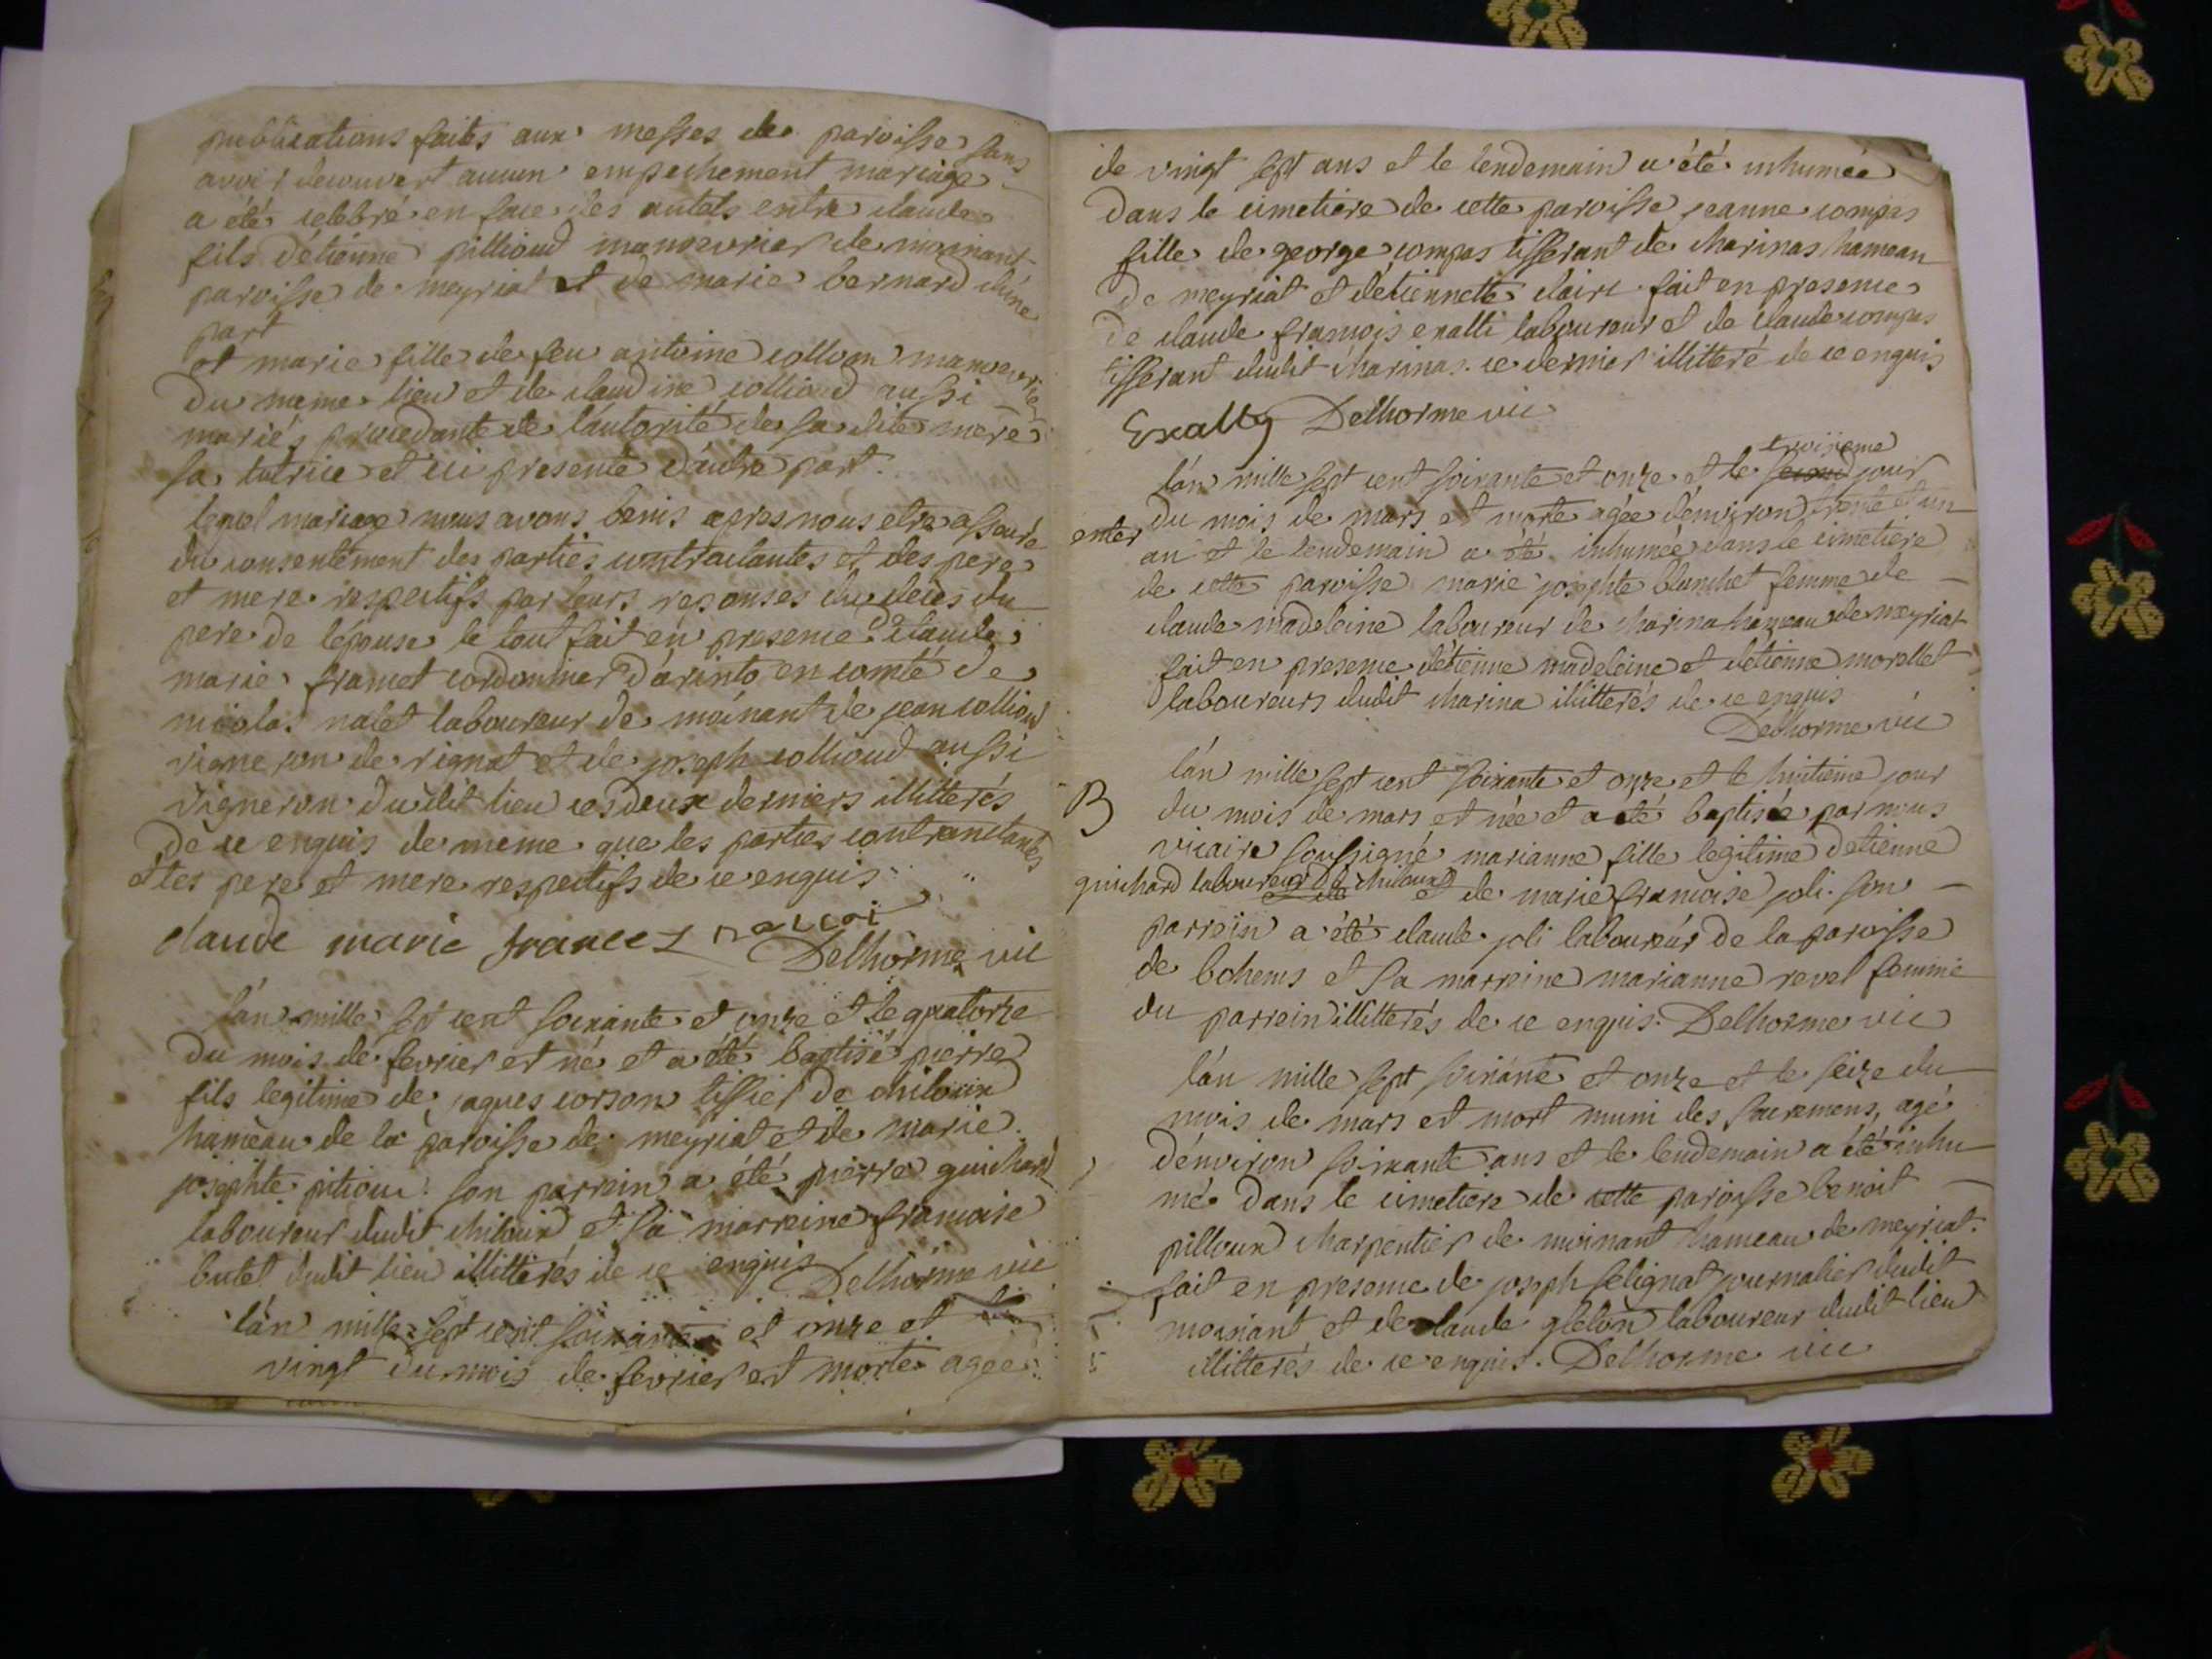 publications faites aux messes de paroisse sans
avoir decouvert aucun empechement mariage
a été celebré en face des autels entre claude
fils d'étienne pillioud manoeuvrier de moinant
paroisse de meyriat et de marie bernard d'une
part
et marie fille de feu antoine colliom manoeuvrier
du meme lieu et de claudine colliond aussi
mariés procedante de l'autorité de sa dite mere
sa tutrice et ici presente d'autre part.
lequel mariage nous avons benis apres nous etre assuré
du consentement des parties contractantes et des pere
et mere respectifs par leurs reponses du deces du
pere de l'épouse le tout fait en presence de claude
marie framet cordonnier d'arinto en comté de
nicolas nalet laboureur de moinant de jean colliond
vigneron de rignat et de joseph colliond aussi
vigneron dudit lieu ces deux derniers illitterés
de ce enquis de meme que les parties contranctantes
et les pere et mere respectifs de ce enquis
claude marie framet
Delhorme vic
l'an mille sept cent soixante et onze et le quatorze
du mois de fevrier est né et a été baptisé pierre
fils legitime de jaques corson tissier de chiloux
hameau de la paroisse de meyriat et de marie
josephte pitiou. son parrein a été pierre guichard
laboureur dudit chiloux et sa marreine francoise
butel dudit lieu illitterés de ce enquis Delhorme vic
l'an mille sept cent soixante et onze et le
vingt du mois de fevrier est morte agée
de vingt sept ans et le lendemain a été inhumée
dans le cimetiere de cette paroisse jeanne compas
fille de george compas tisserant de charinas hameau
de meyriat et d'etiennette claire fait en presence
de claude francois exatti laboureur et de claude compas
tisserant dudit charinas. ce dernier illitteré de ce enquis
Exally Delhorme vic
troisieme
l'an mille sept cent soixante et onze et le second jour
du mois de mars est morte agée d'environ trente et un
enter
an et le lendemain a été inhumée dans le cimetiere
de cette paroisse marie josephte blanchet femme de
claude madeleine laboureur de charina hameau de meyriat
fait en presence d'étienne madeleine et d'etienne morellet
laboureurs dudit charina illitterés de ce enquis
Delhorme vic
l'an mille sept cent soixante et onze et le huitieme jour
B du mois de mars est née et a été baptisée par nous
vicaire soussigné marianne fille legitime d'etienne
guichard laboureur de chiloux et de marie francoise joli. son
parrein a été claude joli laboureur de la paroisse
de bohems et sa marreine marianne revel femme
du parrein illitterés de ce enquis. Delhorme vic
l'an mille sept soixante et onze et le seize du
mois de mars est mort muni des sacremens, agé
d'environ soixante ans et le lendemain a été inhu
mé dans le cimetiere de cette paroisse benoit
pilloux charpentier de moinant hameau de meyriat.
fait en presence de joseph selignat journalier dudit
moinant et de claude gleton laboureur dudit lieu
illitterés de ce enquis. Delhorme vic